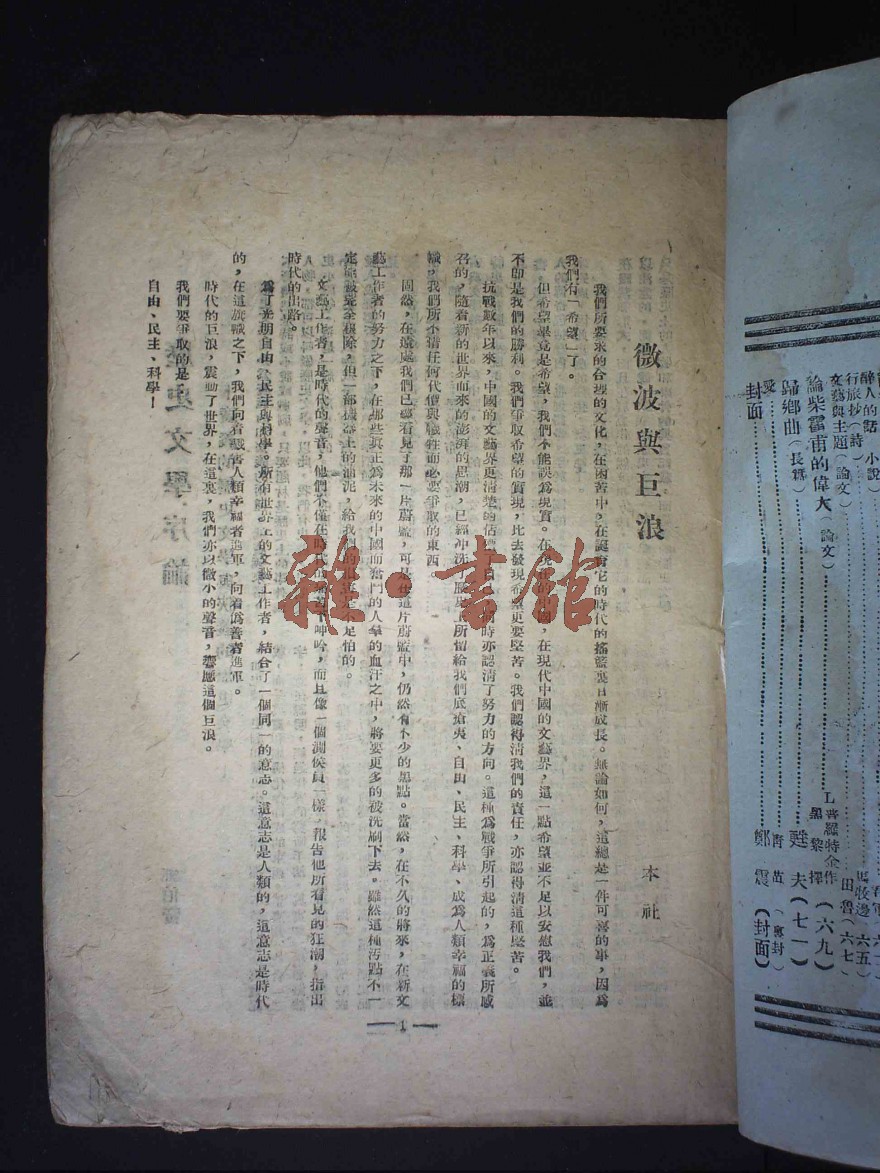 微波與巨浪
本社
我們所要求的合理的文化，在困苦中，在誕育它的時代的搖籃裏日漸成長。無論如何，這總是一件可喜的事，因爲
我們有「希望」了。
但希望畢竟是希望，我們不能誤爲現實。在現在的中國，在現代中國的文藝界，這一點希望並不足以安慰我們，並
不卽是我們的勝利。我們爭取希望的實現，比去發現希望更要堅苦。我們認得清我們的責任，亦認得清這種堅苦。
抗戰數年以來，中國的文藝界更清楚的估 同時亦認清了努力的方向。這種爲戰爭所引起的，爲正義所感
召的，隨着新的世界而來的澎湃的思潮，已經冲洗了歷史上所留給我們底瘡夷、自由、民主、科學、成爲人類幸福的標
幟，我們所不惜任何代價與犧牲而必要爭取的東西。
固然，在遠處我們已經看見了那一片蔚藍，可是在這片蔚藍中，仍然有不少的黑點。當然，在不久的將來，在新文
藝工作者的努力之下，在那些眞正爲未來的中國而奮鬥的人羣的血汗之中，將要更多的被洗刷下去。雖然這種汚點不一
定能被完全積除，但一部機器上的油泥，給我們的 是 足怕的。
文藝工作者，是時代的聲音，他們不僅在時代的 下呻吟，而且像一個測候員一樣，報告他所看見的狂潮，指出
時代的出路。
爲了光明自由、民主與科學。所有世界上的文藝工作者，結合了一個同一的意志。這意志是人類的，這意志是時代
的，在這旗幟之下，我們向着戕害人類幸福者進軍，向着僞善者進軍。
時代的巨浪，震動了世界，在這裏，我們亦以微小的聲音，響應這個巨浪。
我們要爭取的是
自由、民主、科學！
1
醉人的話（小說）
行旅抄（詩） 馬牧邊（六五）
文藝與主題（論文） 田魯（六七）
論柴霍甫的偉大（論文） L普羅特金作 黎擇（六九）
歸鄉曲（長篇） 甦夫（七一）
青苗（裏封）
封面 鄭震（封面）
雜·書館